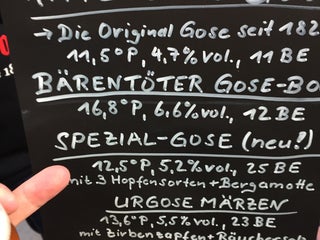 → Die Original Gose seit 182
11,5°P, 4,7% vol., 11 BE
BÄRENTÖTER GOSE-BO
16,8°P, 6,6% vol., 12 BE
SPEZIAL-GOSE (neu!)
12,5°P, 5,2% vol., 25 BE
mit 3 Hopfensorten + Bergamotte
URGOSE MÄRZEN
13,6°P, 5,5% vol., 23 BE
mit Zirbenzapfen + Räuchersalz